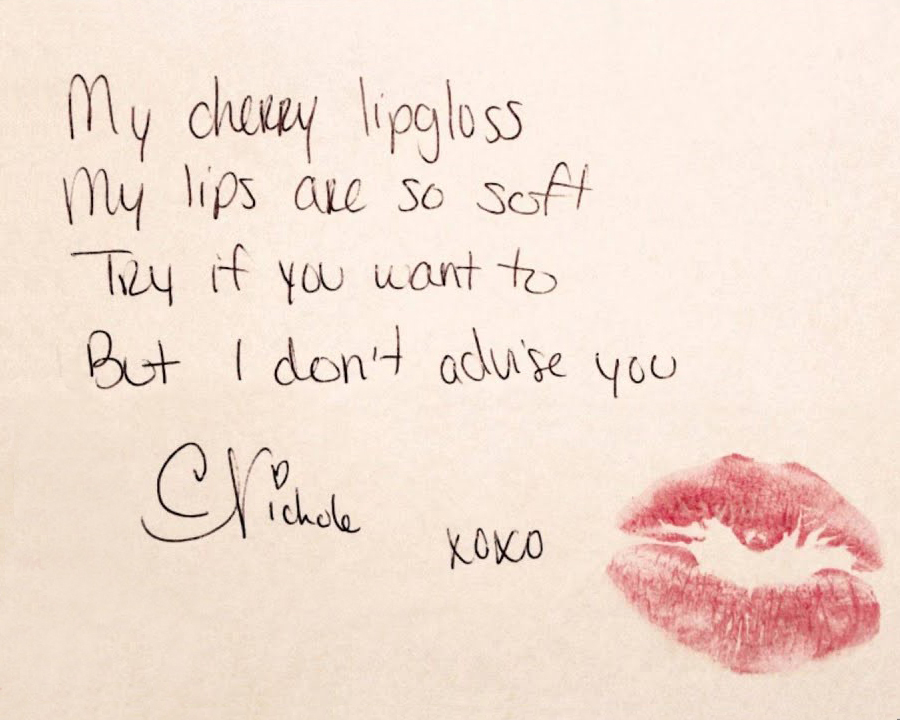 My cherry lipgloss
My lips are so soft
Try if you want to
But I don't advise you
CNichole
xoxo